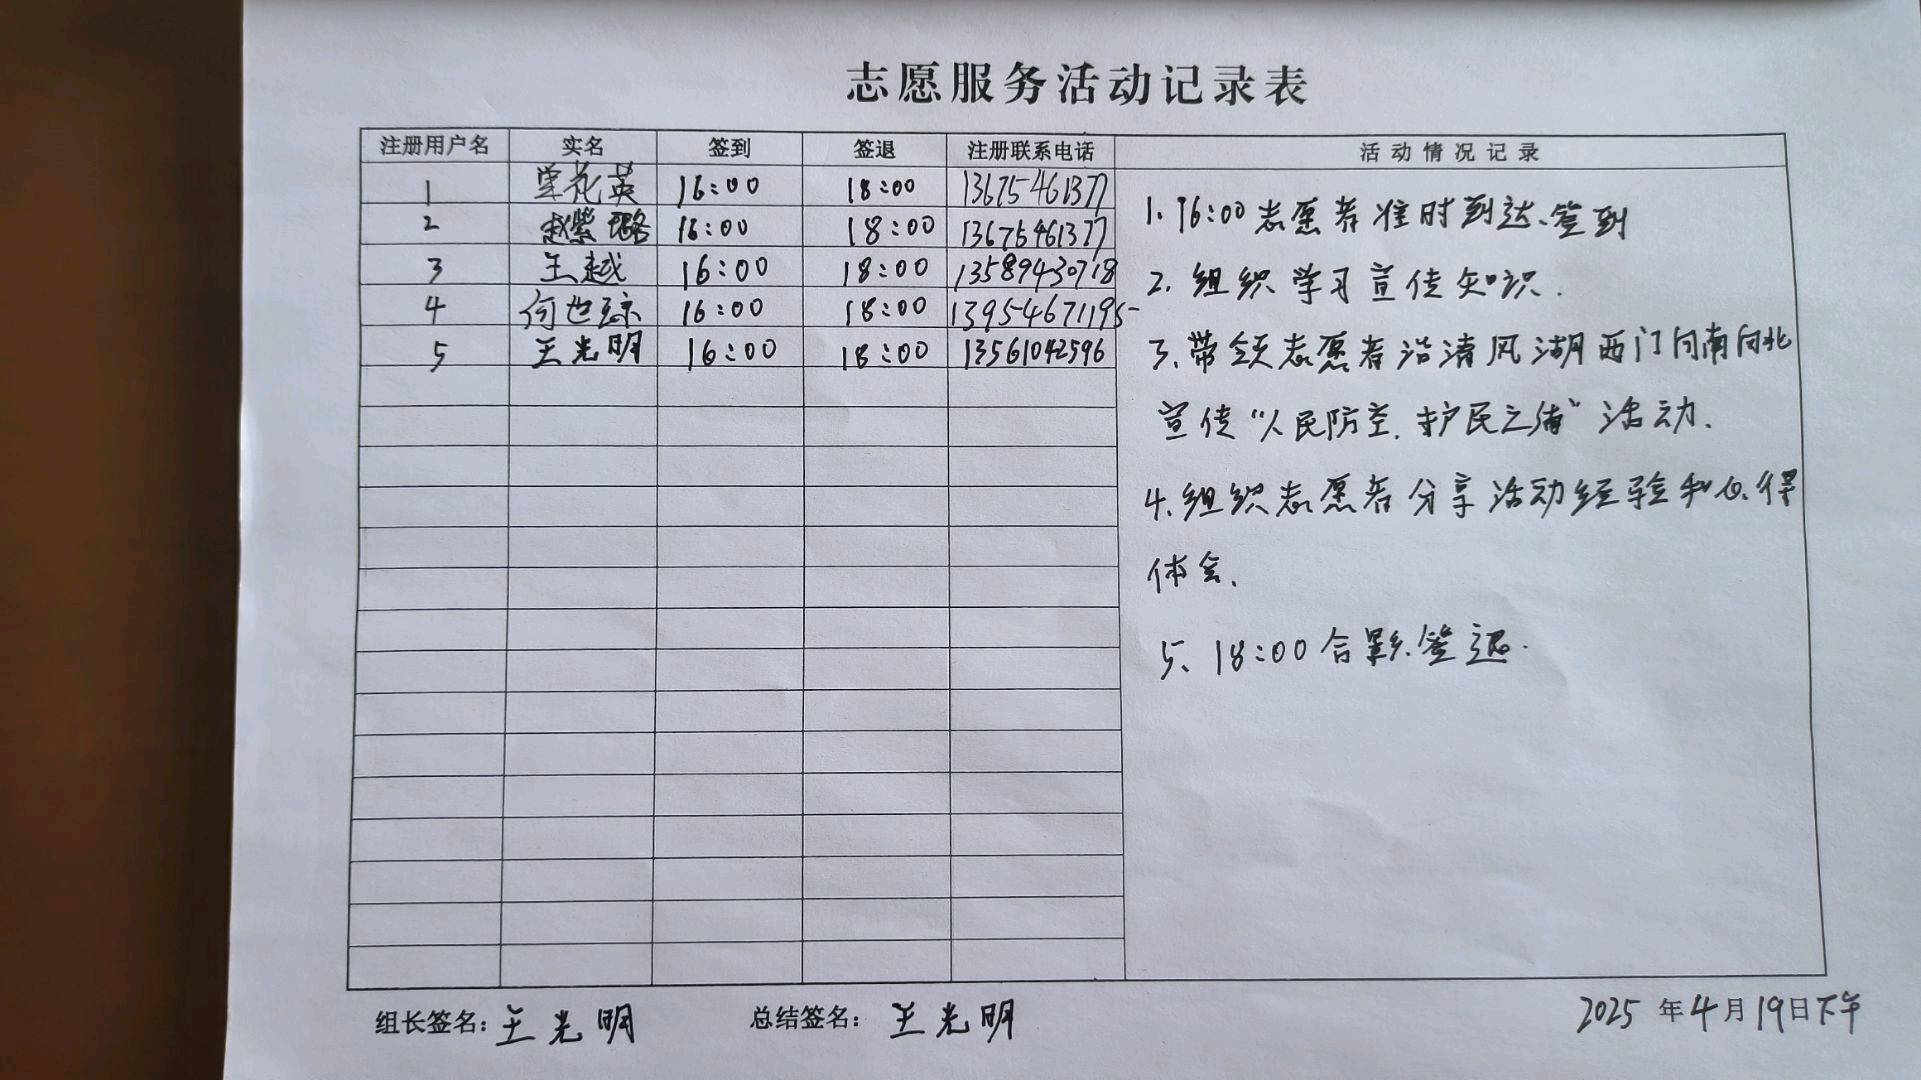 志愿服务活动记录表
注册用户名 实名 签到 签退 注册联系电话 活动情况记录
1 花英 16:00 18:00 13675461377
2 赵紫璐 16:00 18:00 13675461377
3 王越 16:00 18:00 13589430718
4 何世琼 16:00 18:00 13954671195
5 王光明 16:00 18:00 13561042596
1、16:00志愿者准时到达、签到
2、组织学习宣传知识.
3、带领志愿者沿清风湖西门向南向北
宣传“人民防空、护民之盾”活动.
4、组织志愿者分享活动经验和心得
体会、
5、18:00合影、签退.
组长签名：王光明 总结签名：王光明 2025年4月19日下午